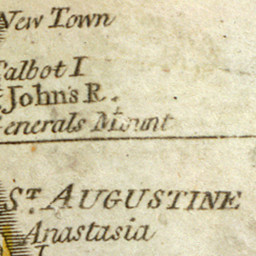 New Town
Talbot I
Johns R.
Generals Mount
ST. AUGUSTINE
Anastasia
I